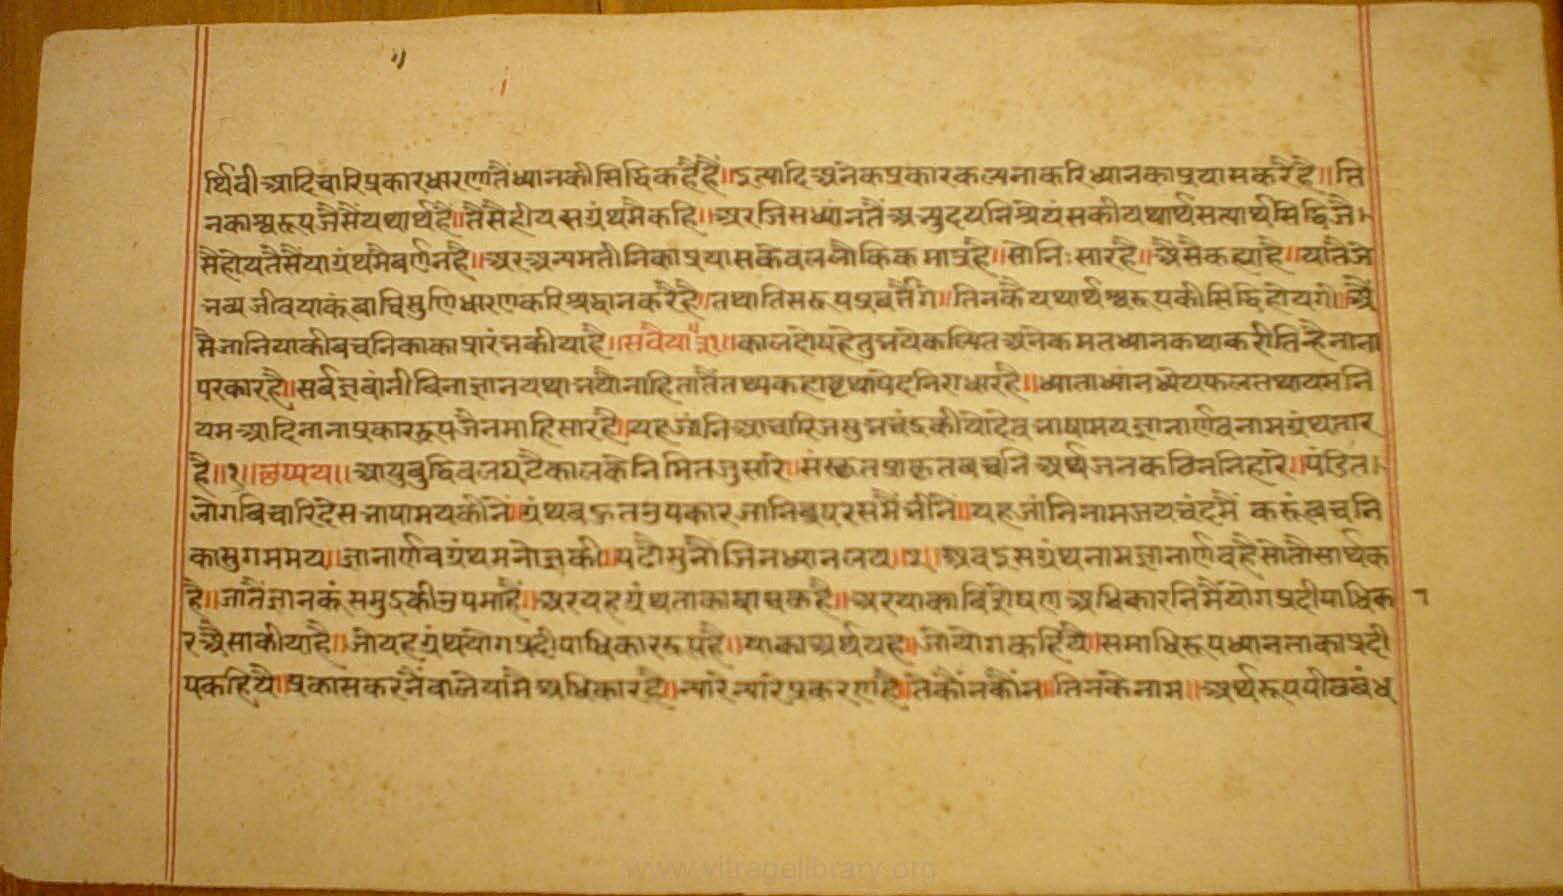 र्थिवीआदिचारिप्रकारधारणातैंध्यानकीसिद्धिकहैंहैं॥इत्यादिअनेकप्रकारकल्पनाकरिध्यानकाप्रयासकरैहै॥ति
नकास्वरूपजैसैंयथार्थहै॥तैसैहीयसग्रंथमैकहि॥अरजिसध्यांनतैंअभ्युदयनिश्रेयंसकीयथार्थसत्यार्थसिद्धिजै
सैहोयतैसैंयाग्रंथमैवर्णनहै॥अरअन्यमतीनिकाप्रयासकेवललौकिकमात्रहै॥सोनिःसारहै॥अैसैकह्याहै॥यातैजे
भव्यजीवयाकूंबांचिसुणिधारणकरिश्रद्धानकरैहै॥तथातिसरूपप्रवर्त्तैंगे॥तिनकैयथार्थस्वरूपकीसिद्धिहोयगी॥अै
सैजानियाकीबचनिकाकाप्रारंभकीयाहै॥सवैया ३१॥कालदोषहेतुभयेकल्पितअनेकमतध्यानकथाकरीतिन्हैनाना
परकारहै॥सर्बज्ञबांनीबिनाज्ञानयथाभयौनाहितातैतथ्यकहा निराधारहै॥ध्याताध्यांनध्येयफलतथायमनि
यमआदिनानाप्रकाररूपजैनमाहिसारहै॥यहजांनिआचारिजसुभचंद्रकीयोहैवभाषामयज्ञानार्णवनामग्रंथतार
है॥१॥छप्पय॥आयुबुद्धिबलघटैकालकेनिमितनुसारे॥संस्कृतप्राकृतबचनिअर्थजनकठिननिहारे॥पंडित
लोगबिचारिदेसभाषामयकीनै॥ग्रंथबहुतउपकारजानिबुधरसमैंभीनै॥यहजांनिनामजयचंदमैं करूंबचनि
कासुगममय॥ज्ञानार्णवग्रंथमनोज्ञकी॥पढौसुनौजिनध्यानलय॥२॥अबइसग्रंथनामज्ञानार्णवहैसोतौसार्थक
है॥जातैंज्ञानकूंसमुद्रकीउपमाहै॥अरयहग्रंथताका है॥अरयाकाबिशेषणअधिकारनिमैंयोगप्रदीपाधिका
रअैसाकीयाहै॥जोयहग्रंथयोगप्रदीपाधिकाररूपहै॥याकाअर्थयह॥जोयोगकहियै॥समाधिरूपध्यानताकाप्रदी
पकहियै॥प्रकासकरनैंवालेयामेअधिकारहै॥न्यारेन्यारेप्रकरणहै॥तेकौंनकौंन॥तिनकेनाम॥अर्थरूपपीठबंध
www.vitragelibrary.org